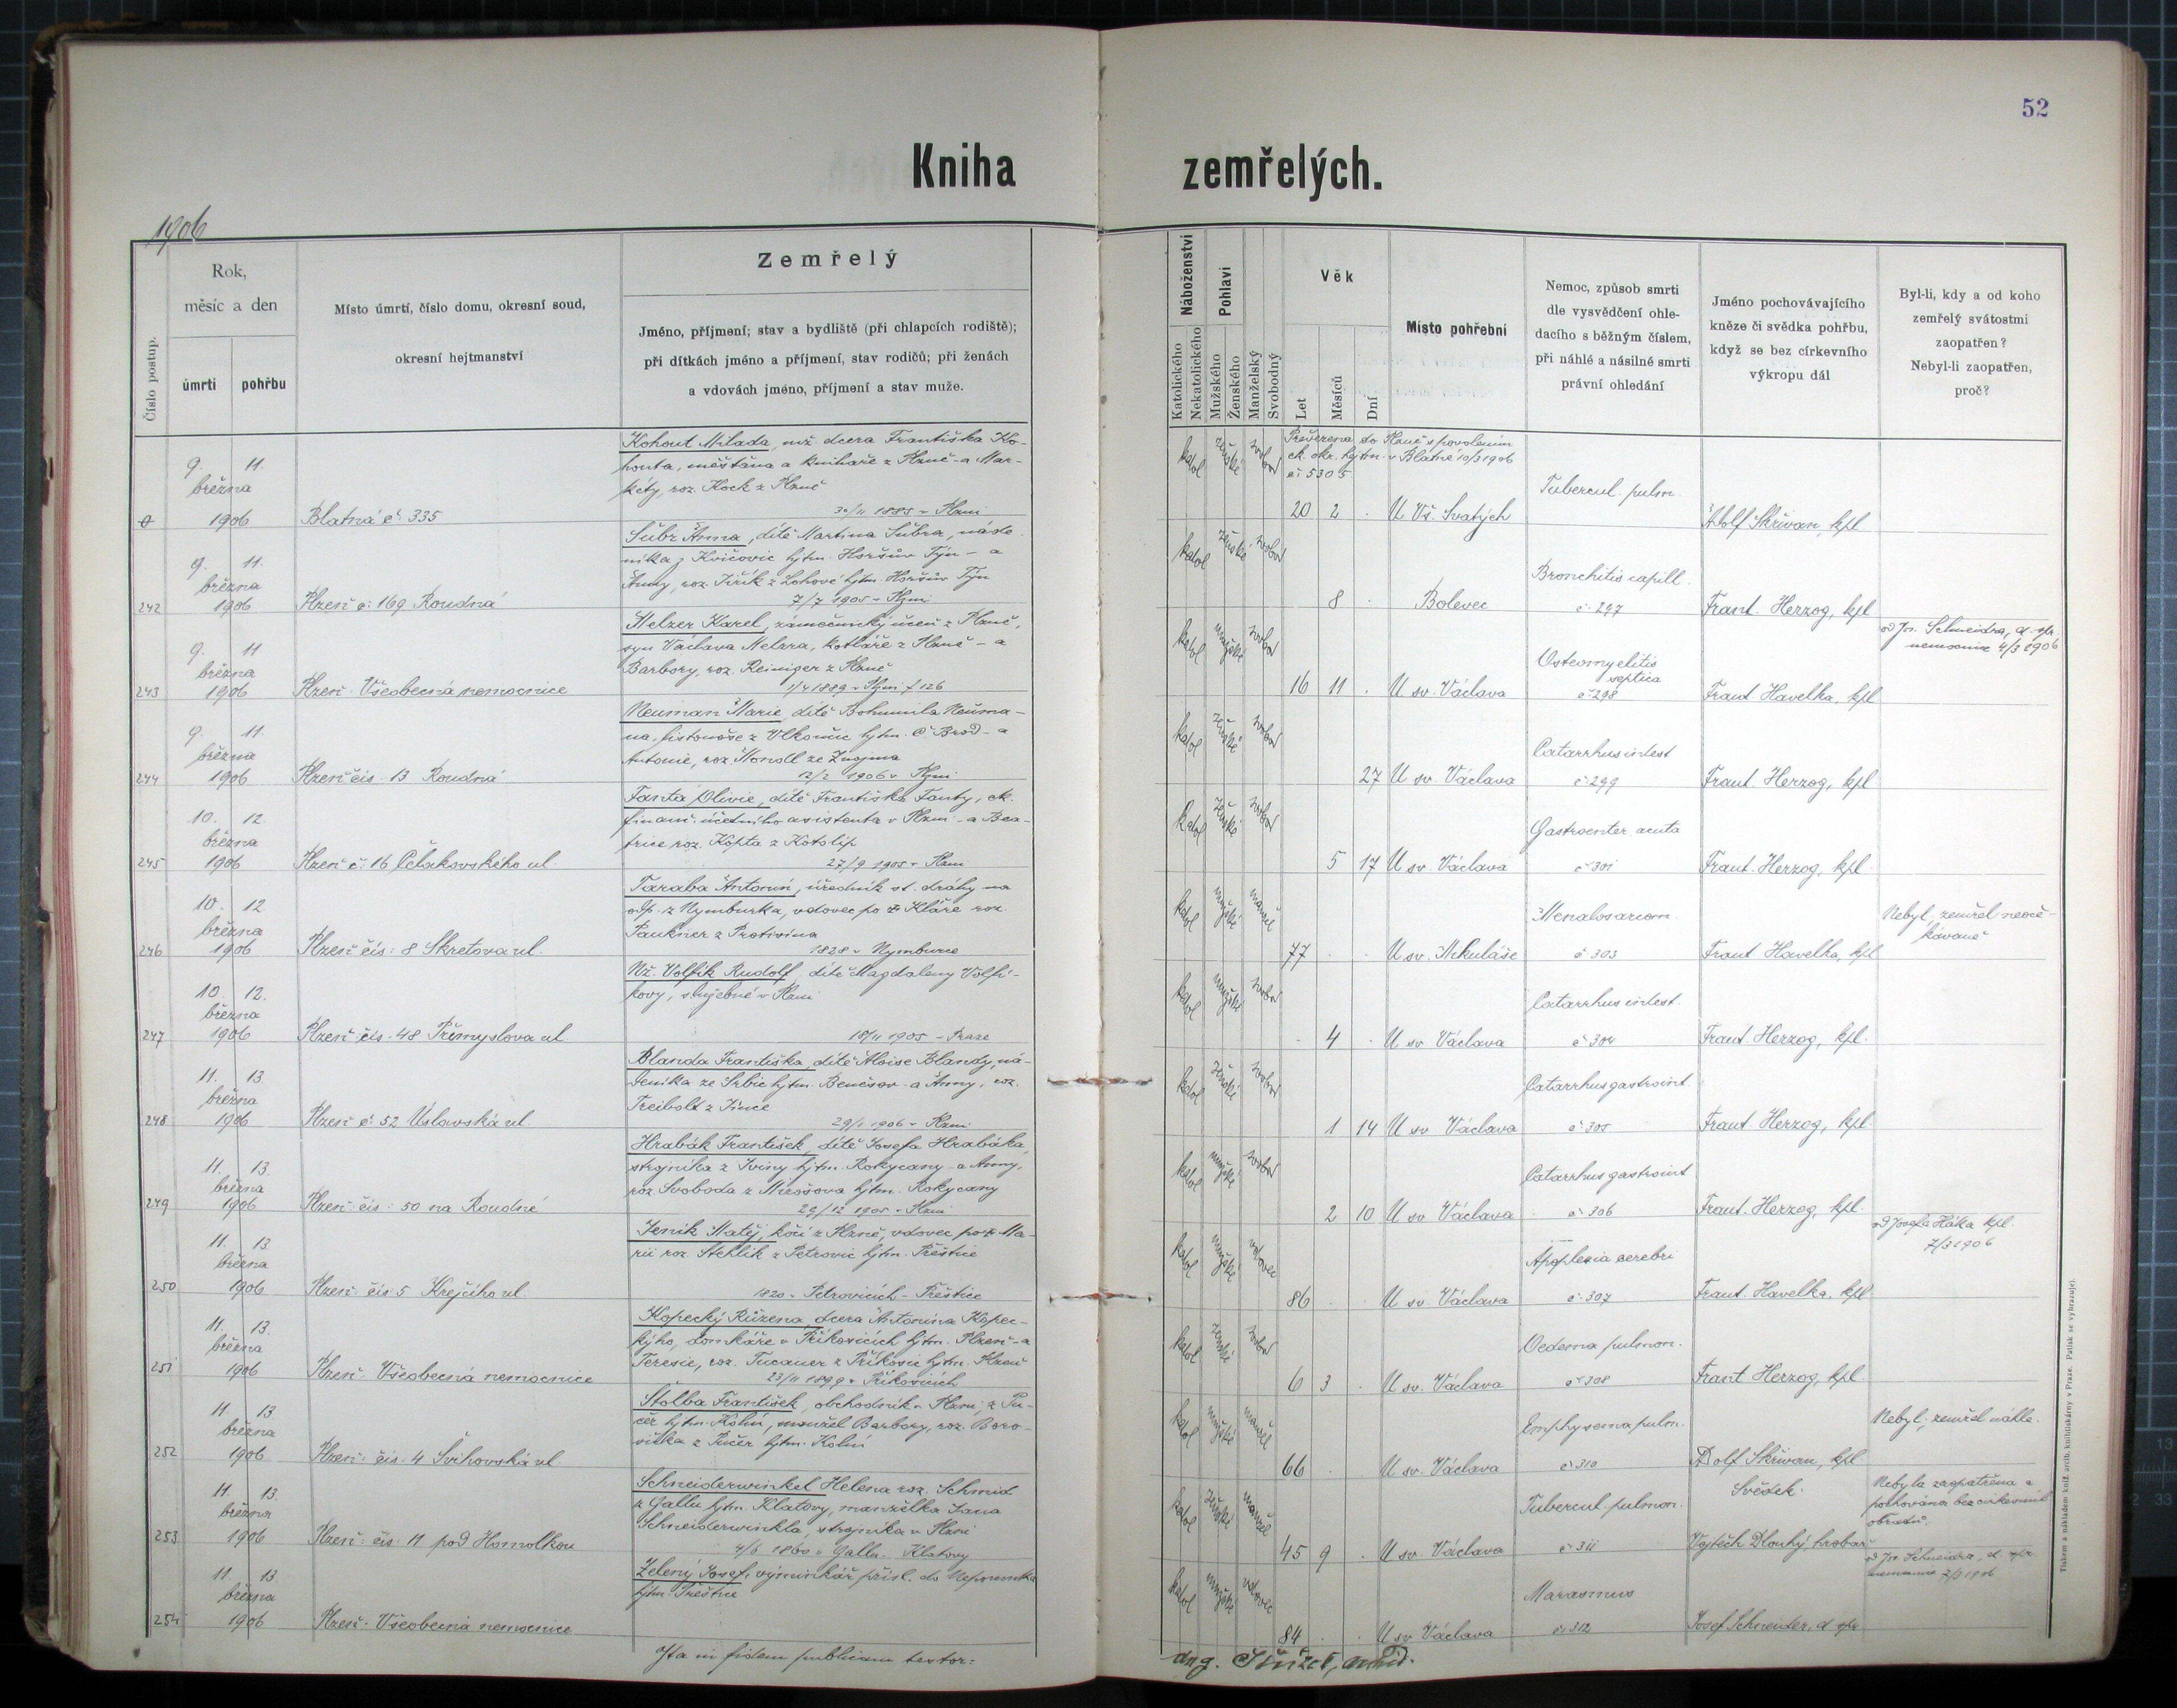 52
Kniha zemřelých.
1906
Číslo postup.
Rok,
měsíc a den
úmrtí
pohřbu
Místo úmrtí, číslo domu, okresní soud,
okresní hejtmanství
Zemřelý
Jméno, příjmení; stav a bydliště (při chlapcích rodiště);
při dítkách jméno a příjmení, stav rodičů; při ženách
a vdovách jméno, příjmení a stav muže.
Náboženství
Katolického
Nekatolického
Pohlaví
Mužského
Ženského
Manželský
Svobodný
Věk
Let
Měsíců
Dní
Místo pohřební
Nemoc, způsob smrti
dle vysvědčení ohle-
dacího s běžným číslem,
při náhlé a násilné smrti
právní ohledání
Jméno pochovávajícího
kněze či svědka pohřbu,
když se bez církevního
výkropu dál
Byl-li, kdy a od koho
zemřelý svátostmi
zaopatřen?
Nebyl-li zaopatřen,
proč?
0
9. 11.
března
1906
Blatná č. 335
Kohout Milada, nž. dcera Františka Ko-
houta, měšťana a knihaře z Plzně - a Mar-
kéty, roz. Kock z Plzně
30/11 1885 v Plzni
katol ženské svobod
Převezena do Plzně s povolením
ck. okr. hejtm. v Blatné 10/3 1906
č. 5305
20 2 .
U Vš. Svatých
Tubercul. pulm.
Adolf Skřivan, kpl
242
9. 11.
března
1906
Plzeň č. 169 Roudná
Šubr Anna, dítě Martina Šubra, náde-
níka z Kvíčovic hjtm. Horšův Týn - a
Anny, roz. Jiřík z Lohové hjtm. Horšův Týn
7/7 1905 v Plzni
katol ženské svobod
8 .
Bolevec
Bronchitis capill.
č. 297
Frant. Herzog, kpl
243
9. 11
března
1906
Plzeň. Všeobecná nemocnice
Melzer Karel, zámečnický učeň z Plzně,
syn Václava Melzra, kotláře z Plzně - a
Barbory, roz. Reiniger z Plzně
1/4 1889 v Plzni f 126
katol mužské svobod
16 11 .
U sv. Václava
Osteomyelitis
septica
č. 298
Frant Havelka, kpl
od Jos. Schneidra, d. spr.
nemocnice 4/3 1906
244
9. 11.
března
1906
Plzeň čís. 13 Roudná
Neuman Marie, dítě Bohumila Neuma-
na, listonoše z Vlkančic hjtm. Č. Brod - a
Antonie, roz. Mondl ze Znojma
12/2 1906 v Plzni
katol ženské svobod
27
U sv. Václava
Catarrhus intest
č. 299
Frant. Herzog, kpl
245
10. 12.
března
1906
Plzeň č. 16 Čelakovského ul.
Fanta Olivie, dítě Františka Fanty, ck.
financ. účetního asistenta v Plzni - a Bea-
trice roz. Kopta z Kotolip
27/9 1905 v Plzni
katol ženské svobod
5 17
U sv. Václava
Gastroenter acuta
č. 301
Frant. Herzog, kpl
246
10. 12
března
1906
Plzeň čís. 8 Skretova ul.
Taraba Antonín, úředník st. dráhy na
odp. z Nymburka, vdovec po Kláře roz.
Paukner z Protivína
1828 v Nymburce
katol mužské manžel
77 . .
U sv. Mikuláše
Menalosarcom.
č. 303
Frant. Havelka, kpl
Nebyl, zemřel neoče-
kávaně
247
10. 12.
března
1906
Plzeň čís. 48 Přemyslova ul
Nž. Volfík Rudolf, dítě Magdaleny Volfí-
kovy, služebné v Plzni
18/11 1905 v Praze
katol mužské svobod
. 4 .
U sv Václava
Catarrhus intest.
č. 304
Frant. Herzog, kpl.
248
11. 13.
března
1906
Plzeň č. 52 Úslavská ul.
Blanda Františka, dítě Aloise Blandy, ná-
deníka ze Srbic hjtm. Benešov - a Anny, roz.
Treibolt z Jince
29/1 1906 v Plzni
katol ženské svobod
1 14
U sv Václava
Catarrhus gastroint.
č. 305
Frant. Herzog, kpl
249
11. 13.
března
1906
Plzeň čís. 50 na Roudné
Hrabák František, dítě Josefa Hrabáka,
strojníka z Sviny hjtm. Rokycany - a Anny,
roz. Svoboda z Mirošova hjtm. Rokycany
29/12 1905 v Plzni
katol mužské svobod
2 10
U sv Václava
Catarrhus gastroint
č. 306
Frant. Herzog, kpl.
250
11. 13.
března
1906
Plzeň čís. 5 Krejčího ul
Jeník Matěj, kočí z Plzně, vdovec po Ma-
rii roz. Stehlík z Petrovic hjtm. Přeštice
1820 v Petrovicích - Přeštice
katol mužské vdovec
86 . .
U sv. Václava
Apoplexia cerebri
č. 307
Frant. Havelka, kpl
od Josefa Háka kpl.
7/3 1906
251
11. 13.
března
1906
Plzeň. Všeobecná nemocnice
Kopecký Růžena, dcera Antonína Kopec-
kýho, domkáře v Příkovicích hjtm. Plzeň - a
Terezie, roz. Tucauer z Příkovic hjtm. Plzeň
23/11 1899 v Příkovicích
katol ženské svobod
6 3 .
U sv. Václava
Oedema pulmon.
č. 308
Frant Herzog, kpl.
252
11. 13.
března
1906
Plzeň: čís. 4 Švihovská ul
Štolba František, obchodník v Plzni, z Pu-
čer hjtm. Kolín, manžel Barbory, roz. Boro-
vička z Pučer hjtm. Kolín
katol mužské manžel
66 .
U sv. Václava
Emphysema pulm.
č. 310
Adolf Skřivan, kpl
Nebyl; zemřel náhle.
253
11. 13.
března
1906
Plzeň: čís. 11 pod Homolkou
Schneiderwinkel Helena roz. Schmid
z Gallu hjtm. Klatovy, manželka Jana
Schneiderwinkla, strojníka v Plzni
4/6 1860 v Gallu - Klatovy
katol ženské manžel
45 9 .
U sv. Václava
Tubercul. pulmon.
č. 311
Svědek:
Vojtěch Dlouhý, hrobař
Nebyla zaopatřena a
pochována bez církevních
obřadů.
254
11. 13
března
1906
Plzeň. Všeobecná nemocnice
Zelený Josef, výminkář přísl. do Nepomuka
hjtm. Přeštice
katol mužské vdovec
84 . .
U sv Václava
Marasmus
č. 312
Josef Schneider, d. spr
od Jos. Schneidra, d. spr.
nemocnice 7/3 1906
Ita in fidem publicam testor:
Tiskem a nákladem kníž. arcib. knihtiskárny v Praze. Patisk se vyhrazuje.